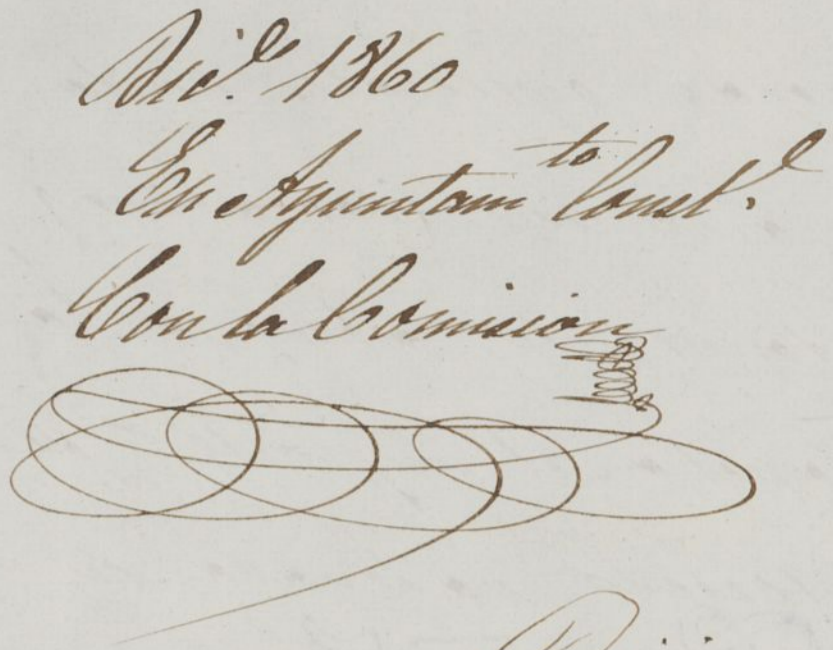 Dic.e 1860
En Ayuntam.to Const.l
Con la Comision